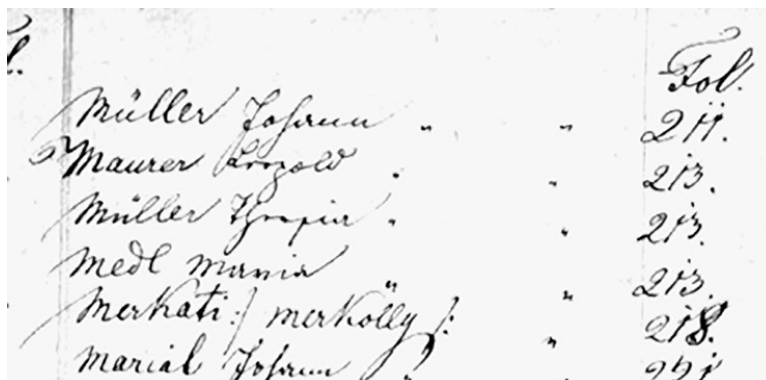 Fol.
Müller Johann " " 211.
Maurer Leopold " " 213.
Müller " " 213.
Medl Maria " 213.
Merkati :/ Merkölly /: " 218.
Marial Johann " 221